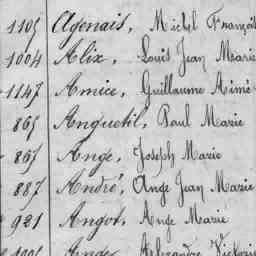 1105 Agenais, Michel François
1004 Alix, Louis Jean Marie
1147 Amice, Guillaume Aimé
865 Anquetil, Paul Marie
867 Ange, Joseph Marie
887 André, Ange Jean Marie
921 Angot, Ange Marie
Ange, Alexandre Victorie